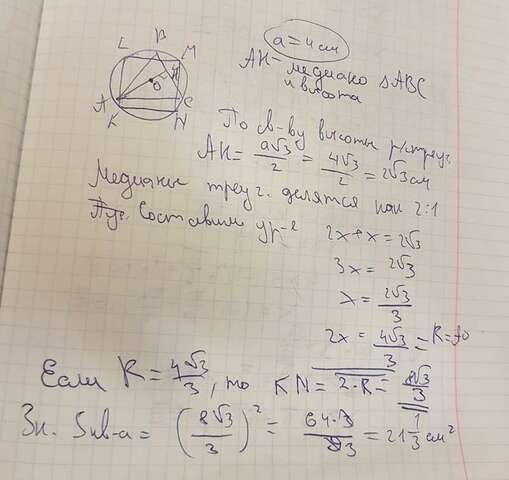 a = 4 см
L B M
H
O
A C
K N
AH - медиана ΔABC
и высота
По св-ву высоты р/треуг.
AH = a√3/2 = 4√3/2 = 2√3 см
Медианы треуг. делятся как 2:1
Составим ур-е
2x + x = 2√3
3x = 2√3
x = 2√3/3
2x = 4√3/3 = R = AO
Если R = 4√3/3, то KN = 2·R = 8√3/3
Зн. Sкв-а = (8√3/3)² = 64·3/93 = 21 1/3 см²